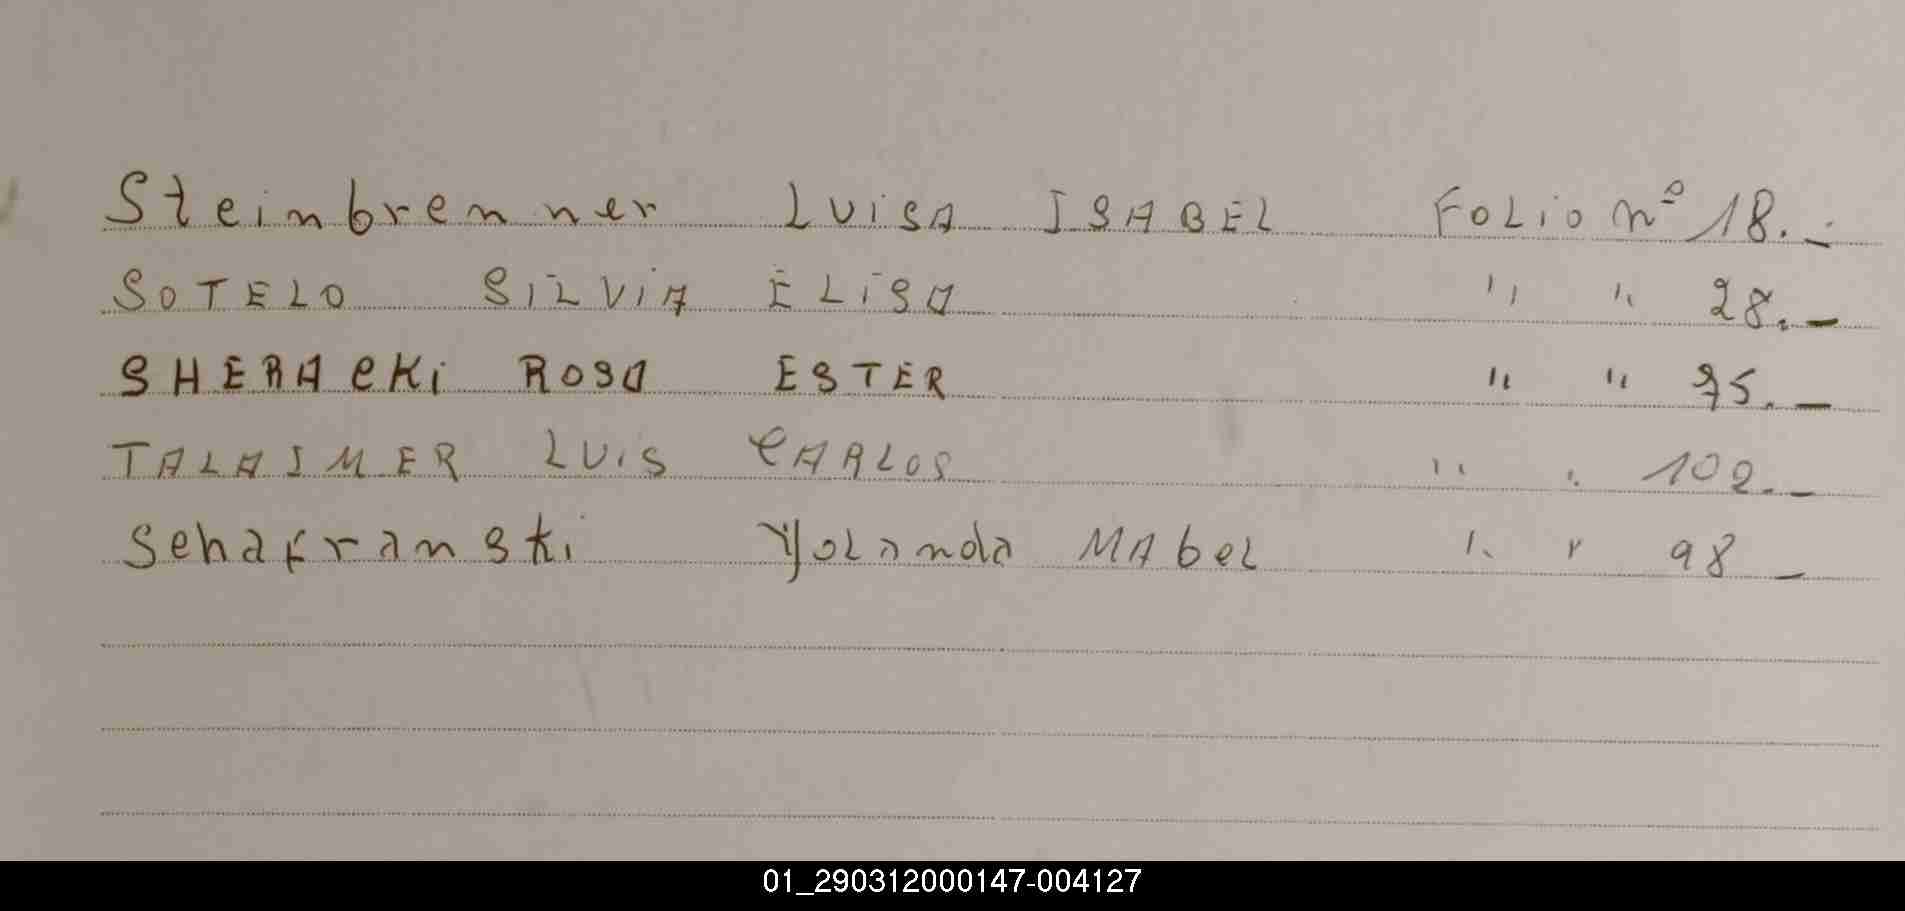 Steinbrenner LUISA ISABEL FOLIO nº 18.-
SOTELO SILVIA ELISA " " 28.-
SHERACKI ROSA ESTER " " 75.-
TALAIMER LUIS CARLOS " " 102.-
Schafranski Yolanda MAbel " " 98 -
01_290312000147-004127